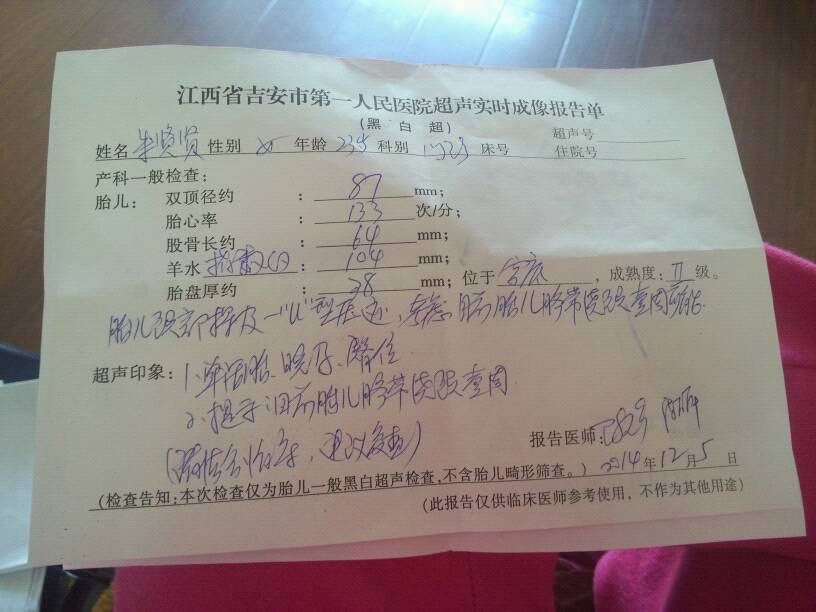 江西省吉安市第一人民医院超声实时成像报告单
(黑白超)
超声号
姓名 朱贤贤 性别 女 年龄 23岁 科别 门诊 床号 住院号
产科一般检查:
胎儿: 双顶径约 : 87 mm;
胎心率 : 133 次/分;
股骨长约 : 64 mm;
羊水 指数约 : 104 mm; 位于 宫底 , 成熟度: II 级。
胎盘厚约 : 28 mm;
胎儿颈部探及一"U"型压迹, 考虑 目前胎儿脐带绕颈壹周
超声印象: 1、单活胎、晚孕、臀位
2、提示:目前胎儿脐带绕颈壹周
(请结合临床, 建议复查)
报告医师:
2014年12月5日
(检查告知:本次检查仅为胎儿一般黑白超声检查,不含胎儿畸形筛查。)
(此报告仅供临床医师参考使用,不作为其他用途)